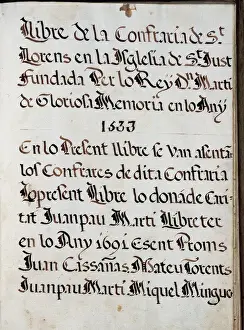 Llibre de la Confraria de St.
Lorens en la Isglesia de St. Just
Fundada Per lo Rey Dn. Marti
de Gloriosa Memoria en lo Any
1533
En lo Present llibre se van asentã
los Confrares de dita Confraria
Lo present Libre lo dona de Cari
tat Juan pau Marti Llibreter
en lo Any 1601 Esent Proms
Juan Cassañas, Mateu Torents
Juan pau Marti Miquel Minguo